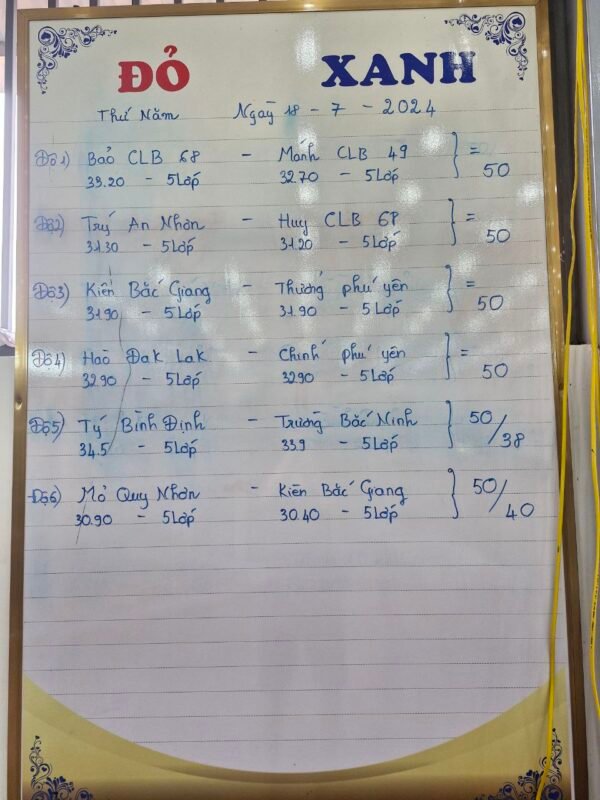 ĐỎ XANH
Thứ Năm Ngày 18 - 7 - 2024
Độ 1) Bảo CLB 68 - Mánh CLB 49 } = 50
33.20 - 5 Lớp 32.70 - 5 Lớp
Độ 2) Trý An Nhơn - Huy CLB 68 } = 50
31.30 - 5 Lớp 31.20 - 5 Lớp
Độ 3) Kiên Bắc Giang - Thướng phú yên } = 50
31.90 - 5 Lớp 31.90 - 5 Lớp
Độ 4) Hào Đak Lak - Chính phú yên } = 50
32.90 - 5 Lớp 32.90 - 5 Lớp
Độ 5) Tý Bình Định - Trường Bắc Ninh } 50/38
34.5 - 5 Lớp 33.9 - 5 Lớp
Độ 6) Mỏ Quy Nhơn - Kiên Bắc Giang } 50/40
30.90 - 5 Lớp 30.40 - 5 Lớp